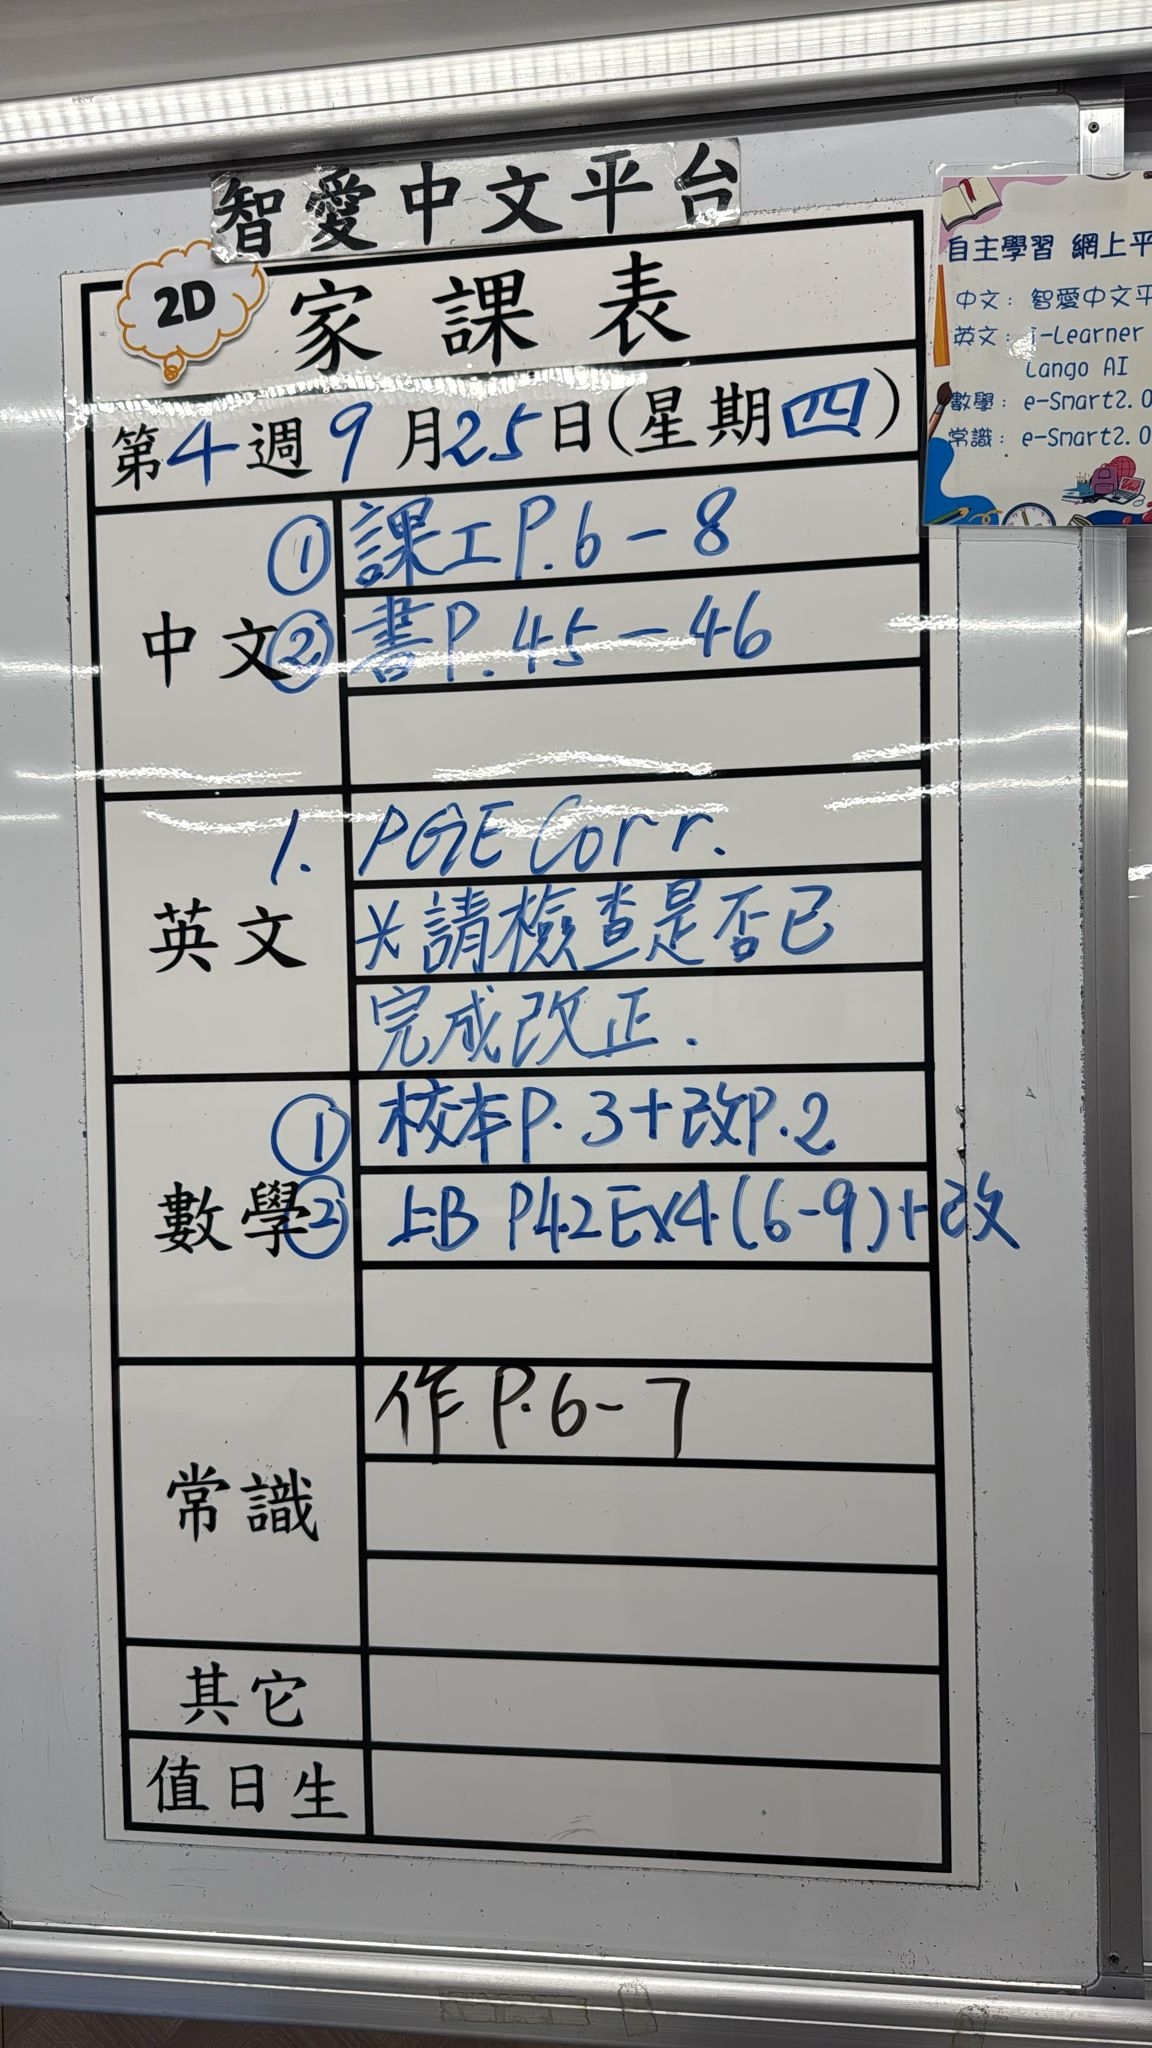 智愛中文平台
2D
家課表
第4週9月25日(星期四)
中文
① 課工P.6-8
② 書P.45-46
英文
1. PGE Corr.
*請檢查是否已
完成改正.
數學
① 校本P.3+改P.2
② 上B P42Ex4(6-9)+改
常識
作P.6-7
其它
值日生
自主學習 網上平
中文: 智愛中文平
英文: i-Learner
Lango AI
數學: e-Smart2.0
常識: e-Smart2.0